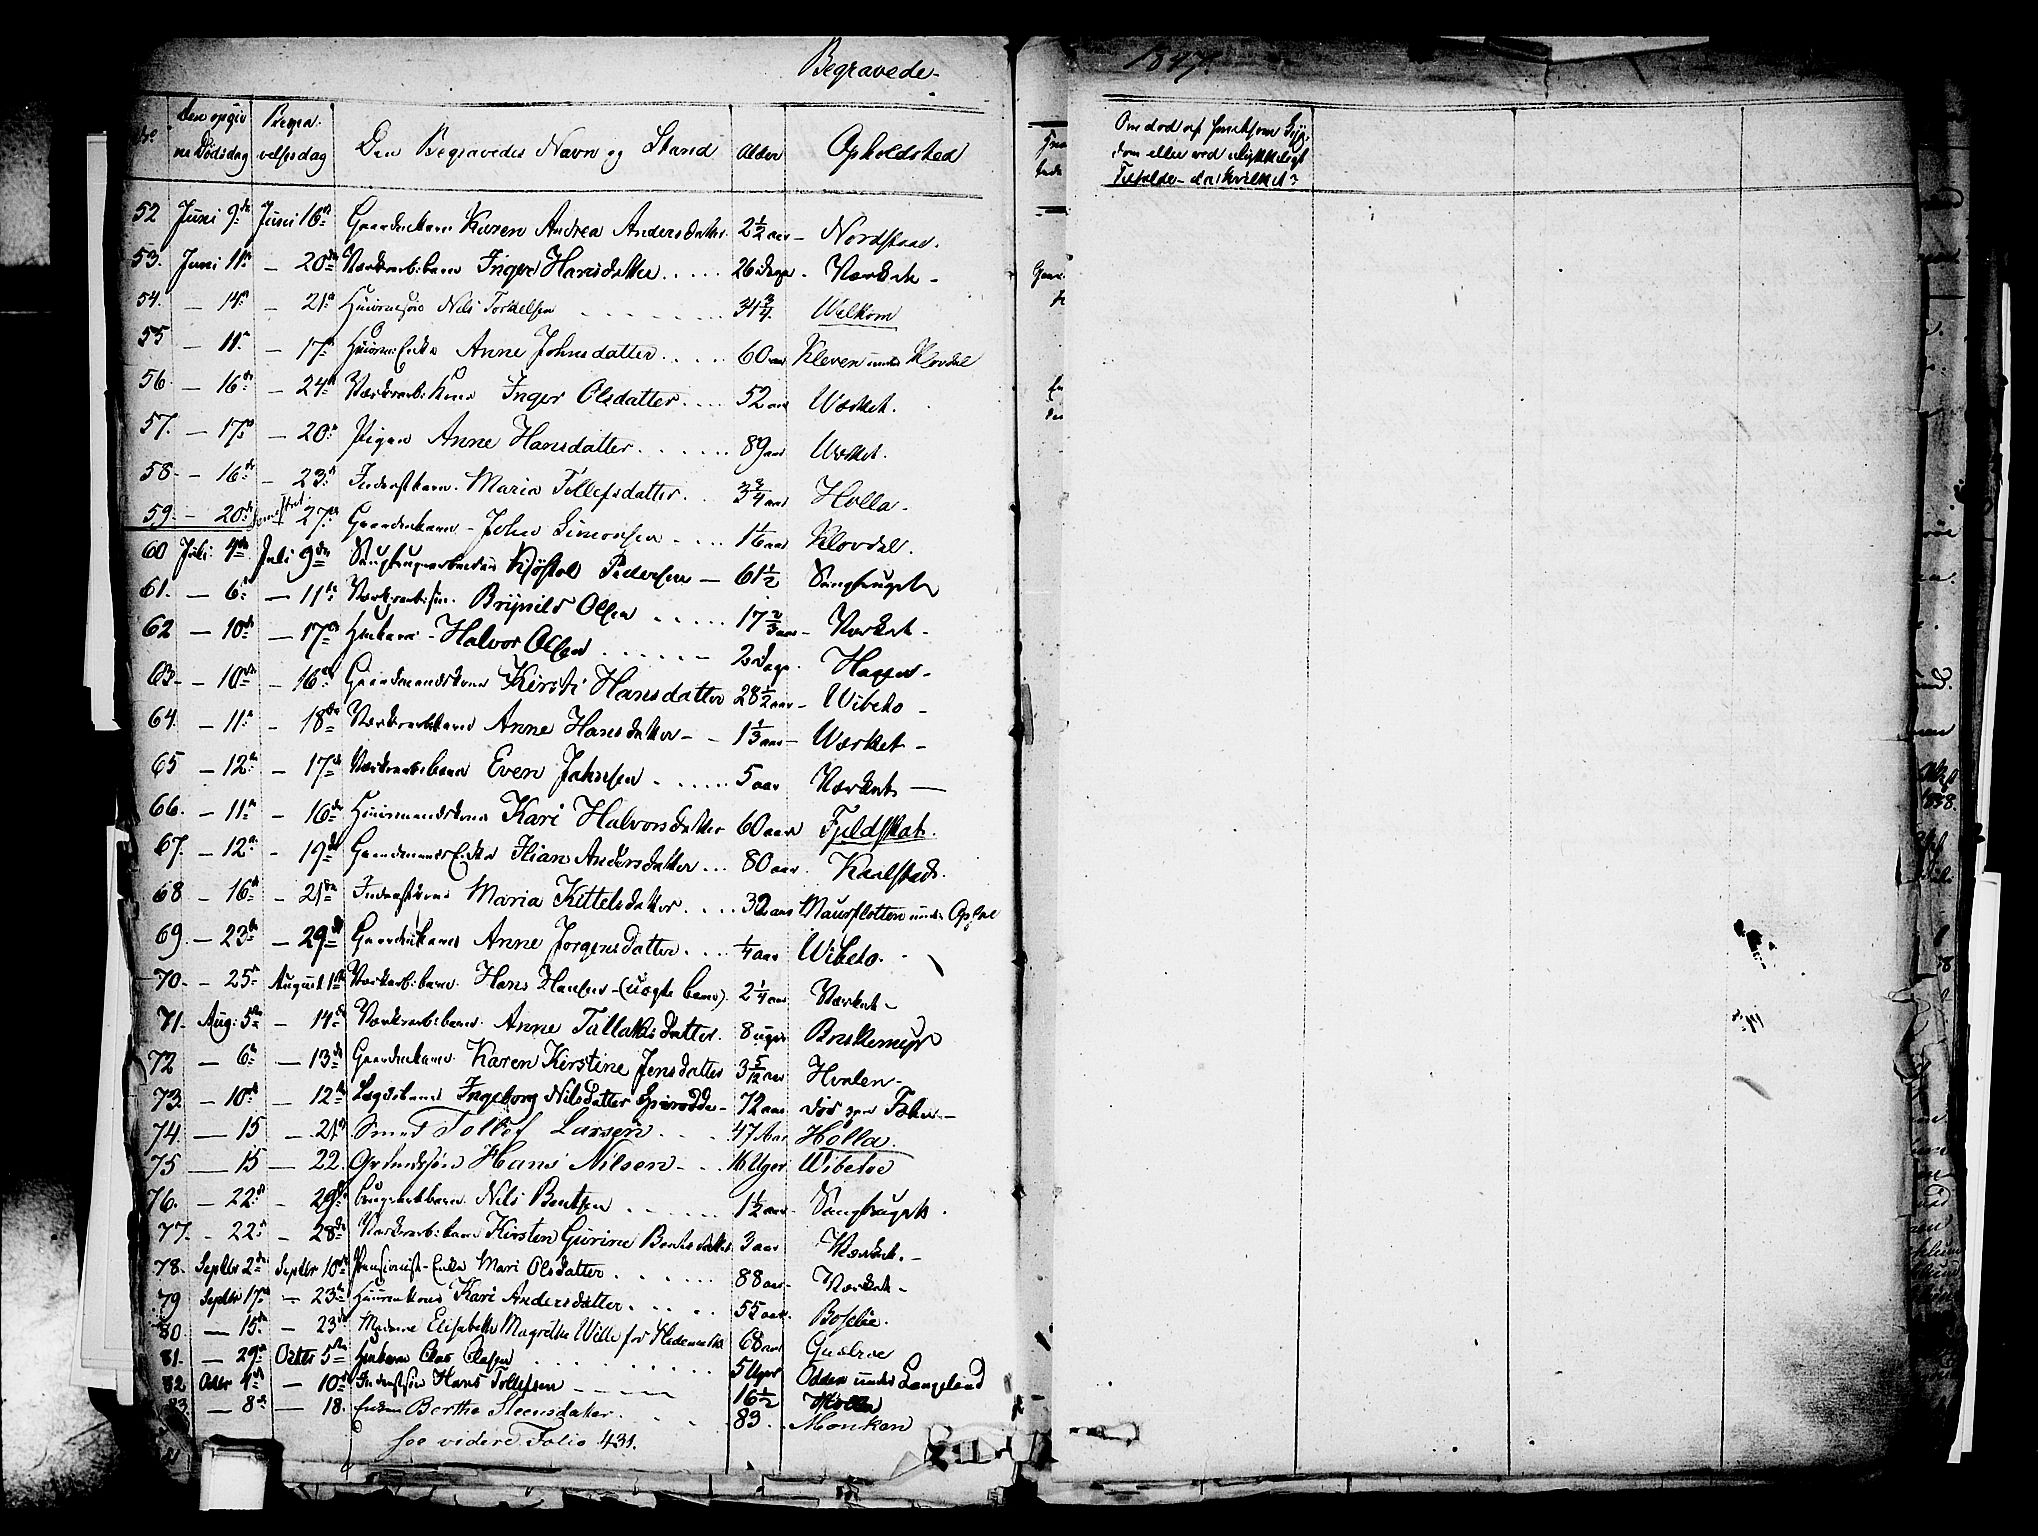 Begravede. 1847.
No Den opgivne Dødsdag Begravelsesdag Den Begravedes Navn og Stand Alder Opholdsted Om død af smitsom Sygdom eller ved ulykkeligt Tilfælde - da hvilket?
52 Juni 9de Juni 16de Gaardmbarn Karen Andrea Andersdatter 2 1/2 aar - Nordstaae.
53. Juni 11te - 20de Værksarb: barn Inger Hansdatter ..... 26 Dage - Værket -
54. - 14de - 21de Huusmsøn Nils Torkelsen 34 3/4 Welkom
55 - 11te - 17de Huusm: Enke Anne Johnsdatter ..... 60 aar Kleven under Klovdal
56. - 16de - 24de Værksarb: Kone Inger Olsdatter... 52 aar Wærket.
57. - 17de - 20de Pigen Anne Hansdatter ...... 89 aar Værket.
58. - 16de - 23de Inderstbarn. Maria Tollefsdatter.. 3 3/4 aar Holla.
59. - 20de - 27de Gaardmbarn - John Simonsen .... Klovdal.
60 Juli: 4de Juli 9de Saugbrugsarbeider Kjøstol Pedersen - 61 1/2 Saugbruget
61. - 6te - 11te Værksarb: søn. Brynild Olsen ..... 17 2/3 aar - Værket -
62 - 10de - 17de Husbarn - Halvor Olsen ...... 2 Dage. Hagen -
63. - 10de - 16de Gaardmandskone Kirsti Hansdatter 28 1/2 aar - Wibeto -
64. - 11te - 18de Værksarbbarn Anne Hansdatter - - 1 1/3 aar - Wærket -
65 - 12te - 17de Værksarbbarn Even Jahnsen ...... 5 aar Værket -
66. - 11te - 16de Huusmandskone Kari Halvorsdatter 60 aar Fjeldskat.
67. - 12te - 19de Gaardmands Enke Ilian Andersdatter ... 80 aar. Kaalstad.
68 - 16de - 21de Inderstkone Maria Kittelsdatter .... 32 aar Maurslotten under Opdal
69. - 23de - 29de Gaardmbarn Anne Jorgensdatter .... 1/4 aar Wibeto.
70. - 25de August 1ste Værksarb: barn. Hans Hansen - (uægte barn). 2 1/4 aar Værket -
71. Aug: 5te - 14de Værksarb: barn. Anne Tallaksdatter. 8 uger Buskemyr
72 - 6te - 13de Gaardmbarn. Karen Kirstine Jensdatter 3 5/12 aar Hvalen -
73. - 10de - 12te Lægdslem Ingeborg Nilsdatter - 72 aar
74. - 15 - 21de Smed Tollef Larsen ... 47 Aar Holla.
75 - 15 - 22. Hans Nilsen - .. 16 Uger Wibetoe
76. - 22de - 29de brugsarbbarn. Nils Bentsen ...... 1 1/2 aar - Saugbruget.
77. - 22de - 28de Værksarb: barn Kirsten Gurine Bentsdatter 3 aar Værket. -
78. Septbr 2den Septbr 10de Pensionist-Enke Mari Olsdatter ...... 88 aar - Værket -
79 Septbr 17de - 23de Huusmkone Kari Andersdatter ..... 55 aar. Bosøe.
80 - 15de - 23de Madame Elisabeth Magrethe Wille 68 aar
81. - 29de Octbr 5te Husbarn Clas Clasen 5 Uger Odden under Langeland
82 Octbr 4de - 10de Inderstsøn Hans Tollefsen - - - 16 1/2 Holla
83. - 8de - 18. Enken Berthe Steensdatter. 83. - Monken
see videre Folio 431.